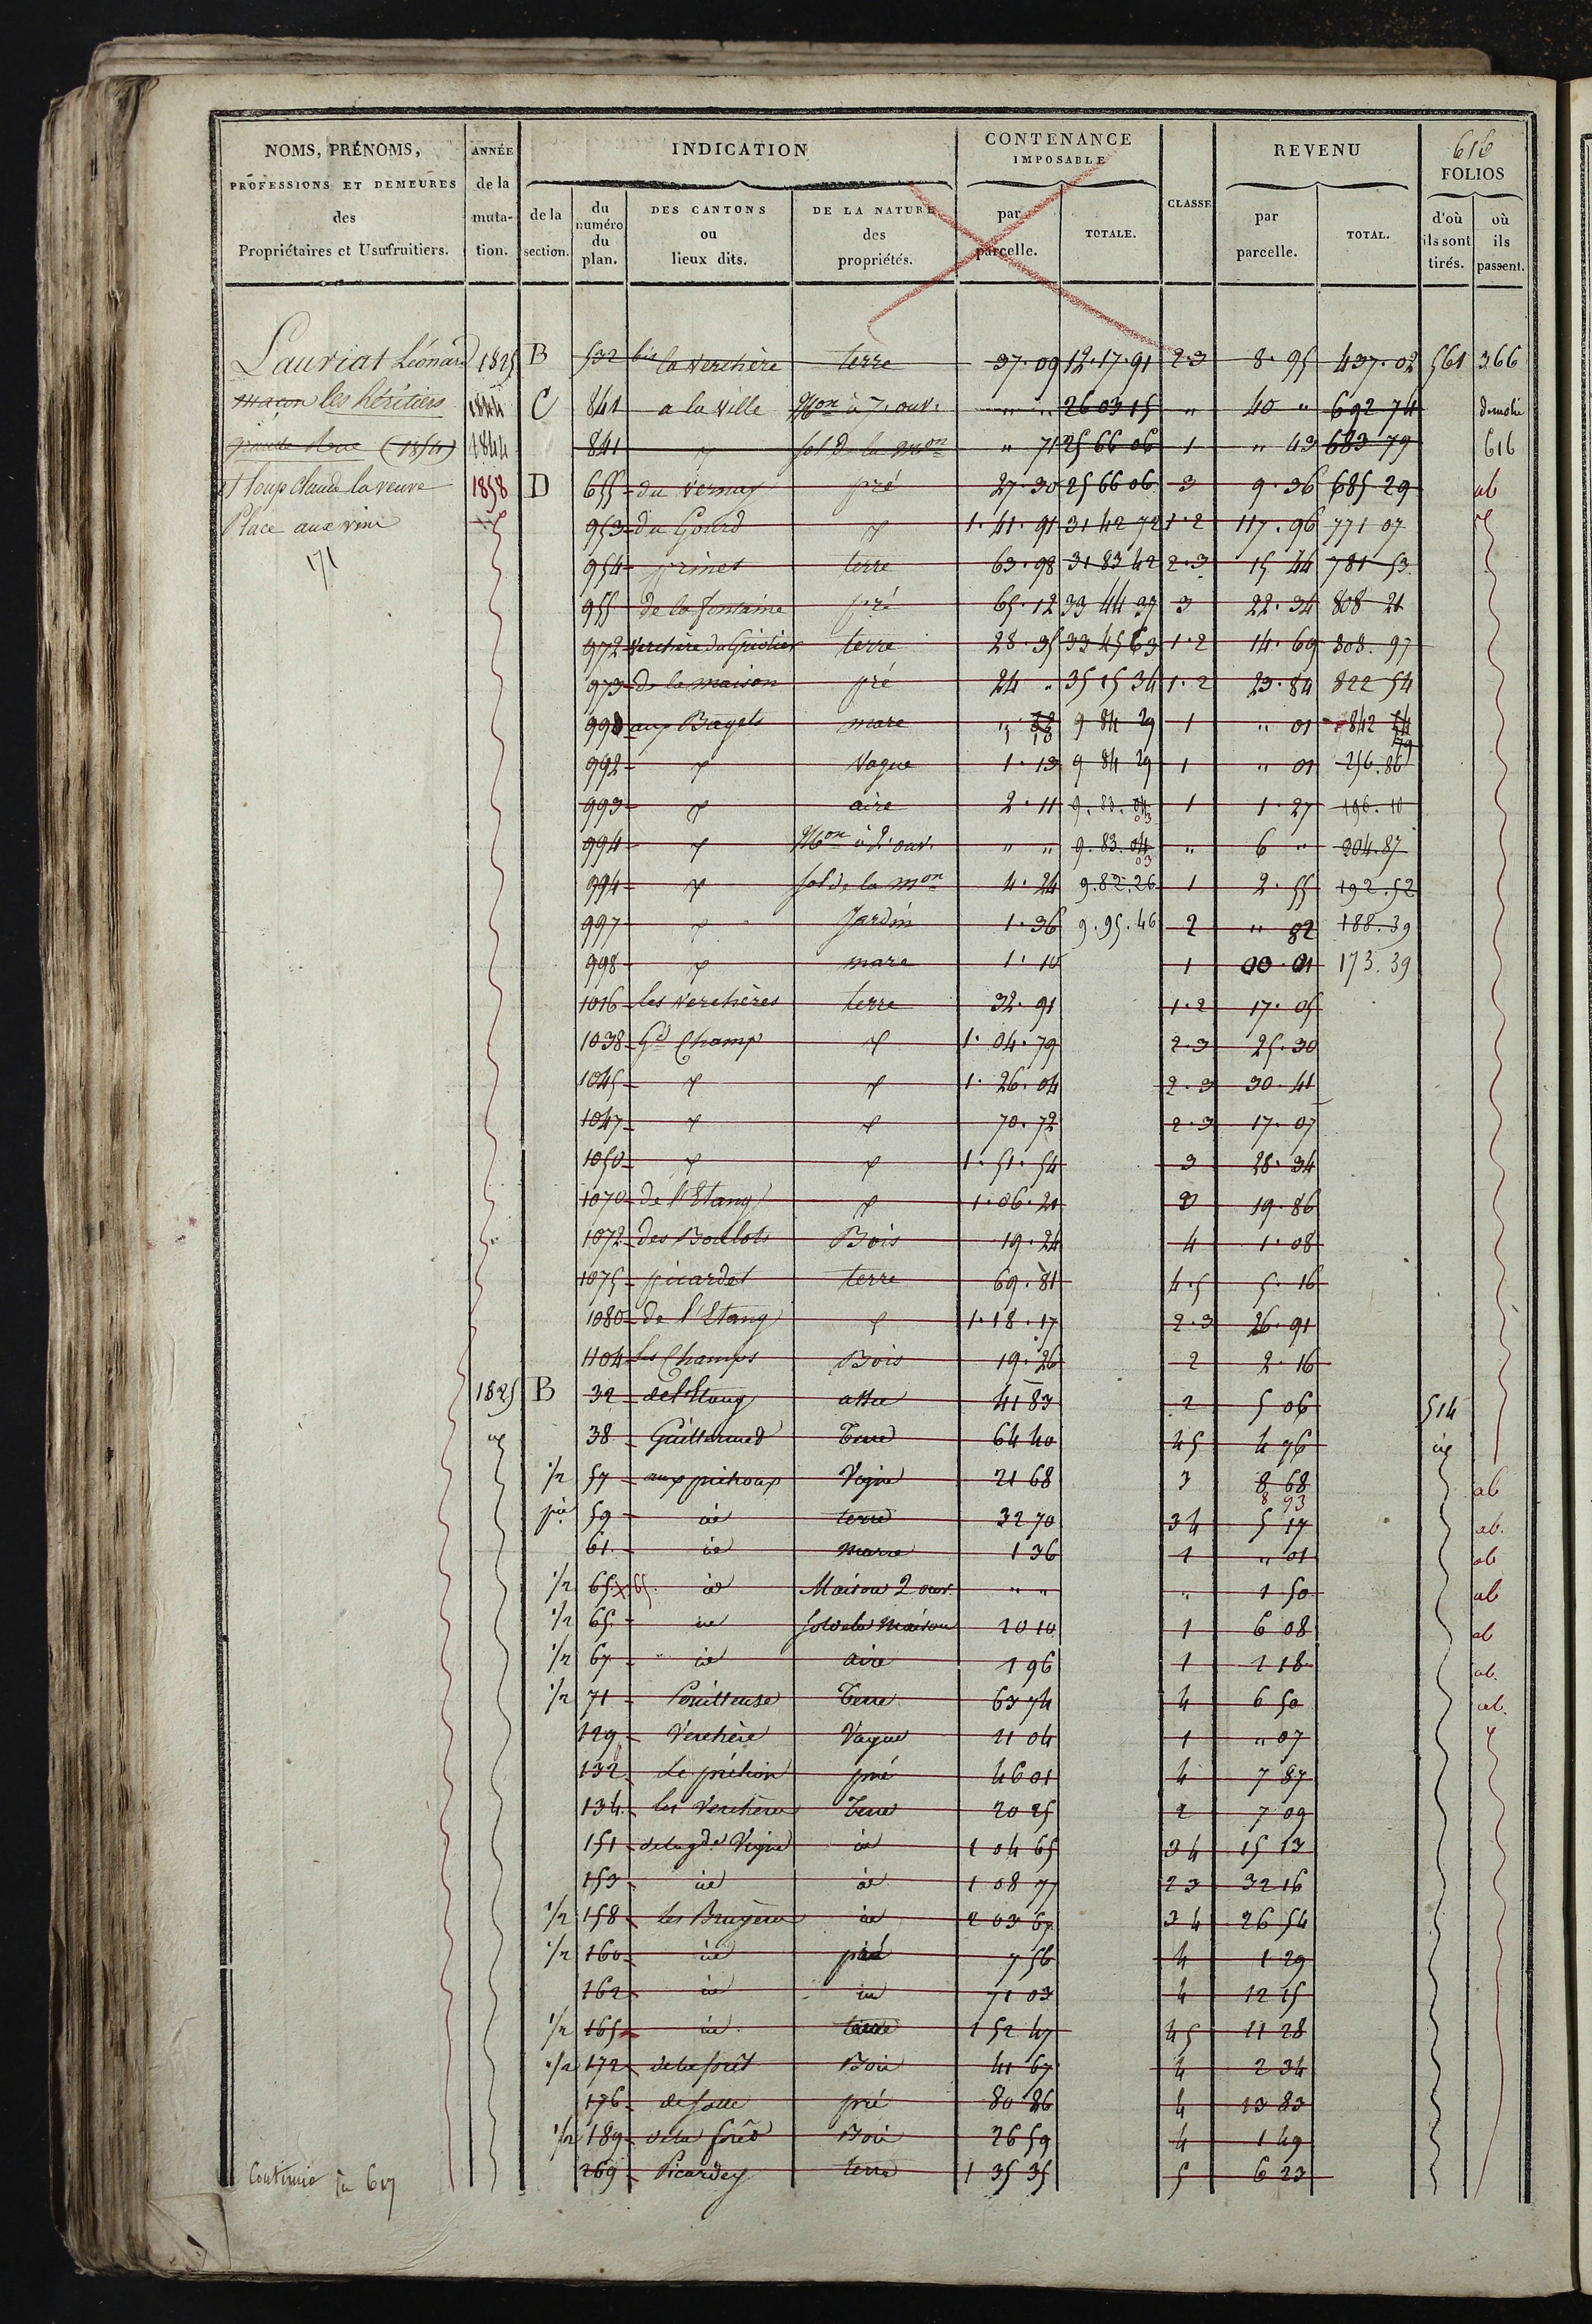 616
NOMS, PRÉNOMS, PROFESSIONS ET DEMEURES des Propriétaires et Usufruitiers.
ANNÉE de la mutation.
INDICATION
de la section.
du numéro du plan.
DES CANTONS ou lieux dits.
DE LA NATURE des propriétés.
CONTENANCE IMPOSABLE
par parcelle.
TOTALE.
CLASSE
REVENU
par parcelle.
TOTAL.
FOLIOS
d'où ils sont tirés.
où ils passent.
Lauriat Léonard 1825 B 532 bis la verchère terre 37.09 12.17.91 2.3 8.95 437.02 561 366
maçon les héritiers 1844 C 841 a la ville Mon à 7. ouv. " " 26 03 15 " 40 " 692 74 démolie
grande Rue (1854) 1844 841 sol de la mon " 71 25 66 06 1 " 43 683 79 616
et loup Claude la veuve 1858 D 655 du vernay pré 27.30 25 66 06 3 9.36 685 29
Place aux vins 953 du Gourd 1.41.91 31 42 72 1.2 117.96 771 07
171
954 terre 63.98 31 83 42 2.3 15 44 781 53
955 de la fontaine pré 65.12 33 44 39 3 22.34 808 21
972 terre 28.35 33 45 63 1.2 14.69 808.97
973 de la maison pré 24 " 35 15 34 1.2 23.84 822 54
990 aux Bagets mare 9 84 29 1 " 01 842
992 Vague 1.13 9 84 29 1 " 01 256.86
993 aire 2.11 9.83.04 1 1.27 196.10
994 Mon à 2. ouv. " " 9.83.04 " 6 " 204.87
994 sol de la mon 4.24 9.82.26 1 2.55 192.52
997 Jardin 1.36 9.95.46 2 " 82 188.39
998 mare 1.10 1 00.01 173.39
1016 les verchères terre 32.91 1.2 17.05
1038 Gd Champ 1.04.79 2.3 25.30
1045 1.26.04 2.3 30.41
1047 70.72 2.3 17.07
1050 1.51.54 3 28.34
1070 de l'Etang 1.06.21 3 19.86
1072 Bois 19.24 4 1.08
1075 picardet terre 69.81 4.5 5.16
1080 de l'Etang 1.18.17 2.3 26.91
1104 les Champs Bois 19.26 2 2.16
1825 B 32 de l'Etang 41 83 2 5 06 514
38 Terre 64 40 45 4 76
1/2 57 Vigne 21 68 3 8 68 ab
8 93
59 id terre 32 70 34 5 17 ab.
61 id mare 1 36 1 " 01 ab
1/2 65 65. id Maison 2 ouv. " " " 1 50 ab
1/2 65 id sol de la maison 10 10 1 6 08 ab
1/2 67 id aire 1 96 1 1 18 ab.
1/2 71 Terre 63 74 4 6 50 ab.
129 Verchère Vague 21 04 1 " 07
132 pré 46 01 4 7 87
134 les Verchères Terre 20 25 2 7 09
151 de la gde Vigne id 1 04 65 34 15 13
153 id id 1 08 77 23 32 16
1/2 158 les Bruyères id 2 03 67 34 26 54
1/2 160 id pré 7 56 4 1 29
162 id id 71 03 4 12 15
1/2 165 id terre 1 52 47 45 11 28
1/2 172 de la forêt Bois 41 67 4 2 34
176 pré 80 86 4 13 83
1/2 189 de la forêt Bois 26 59 4 1 49
269 Picardey terre 1 35 35 5 6 23
Continué fo 617